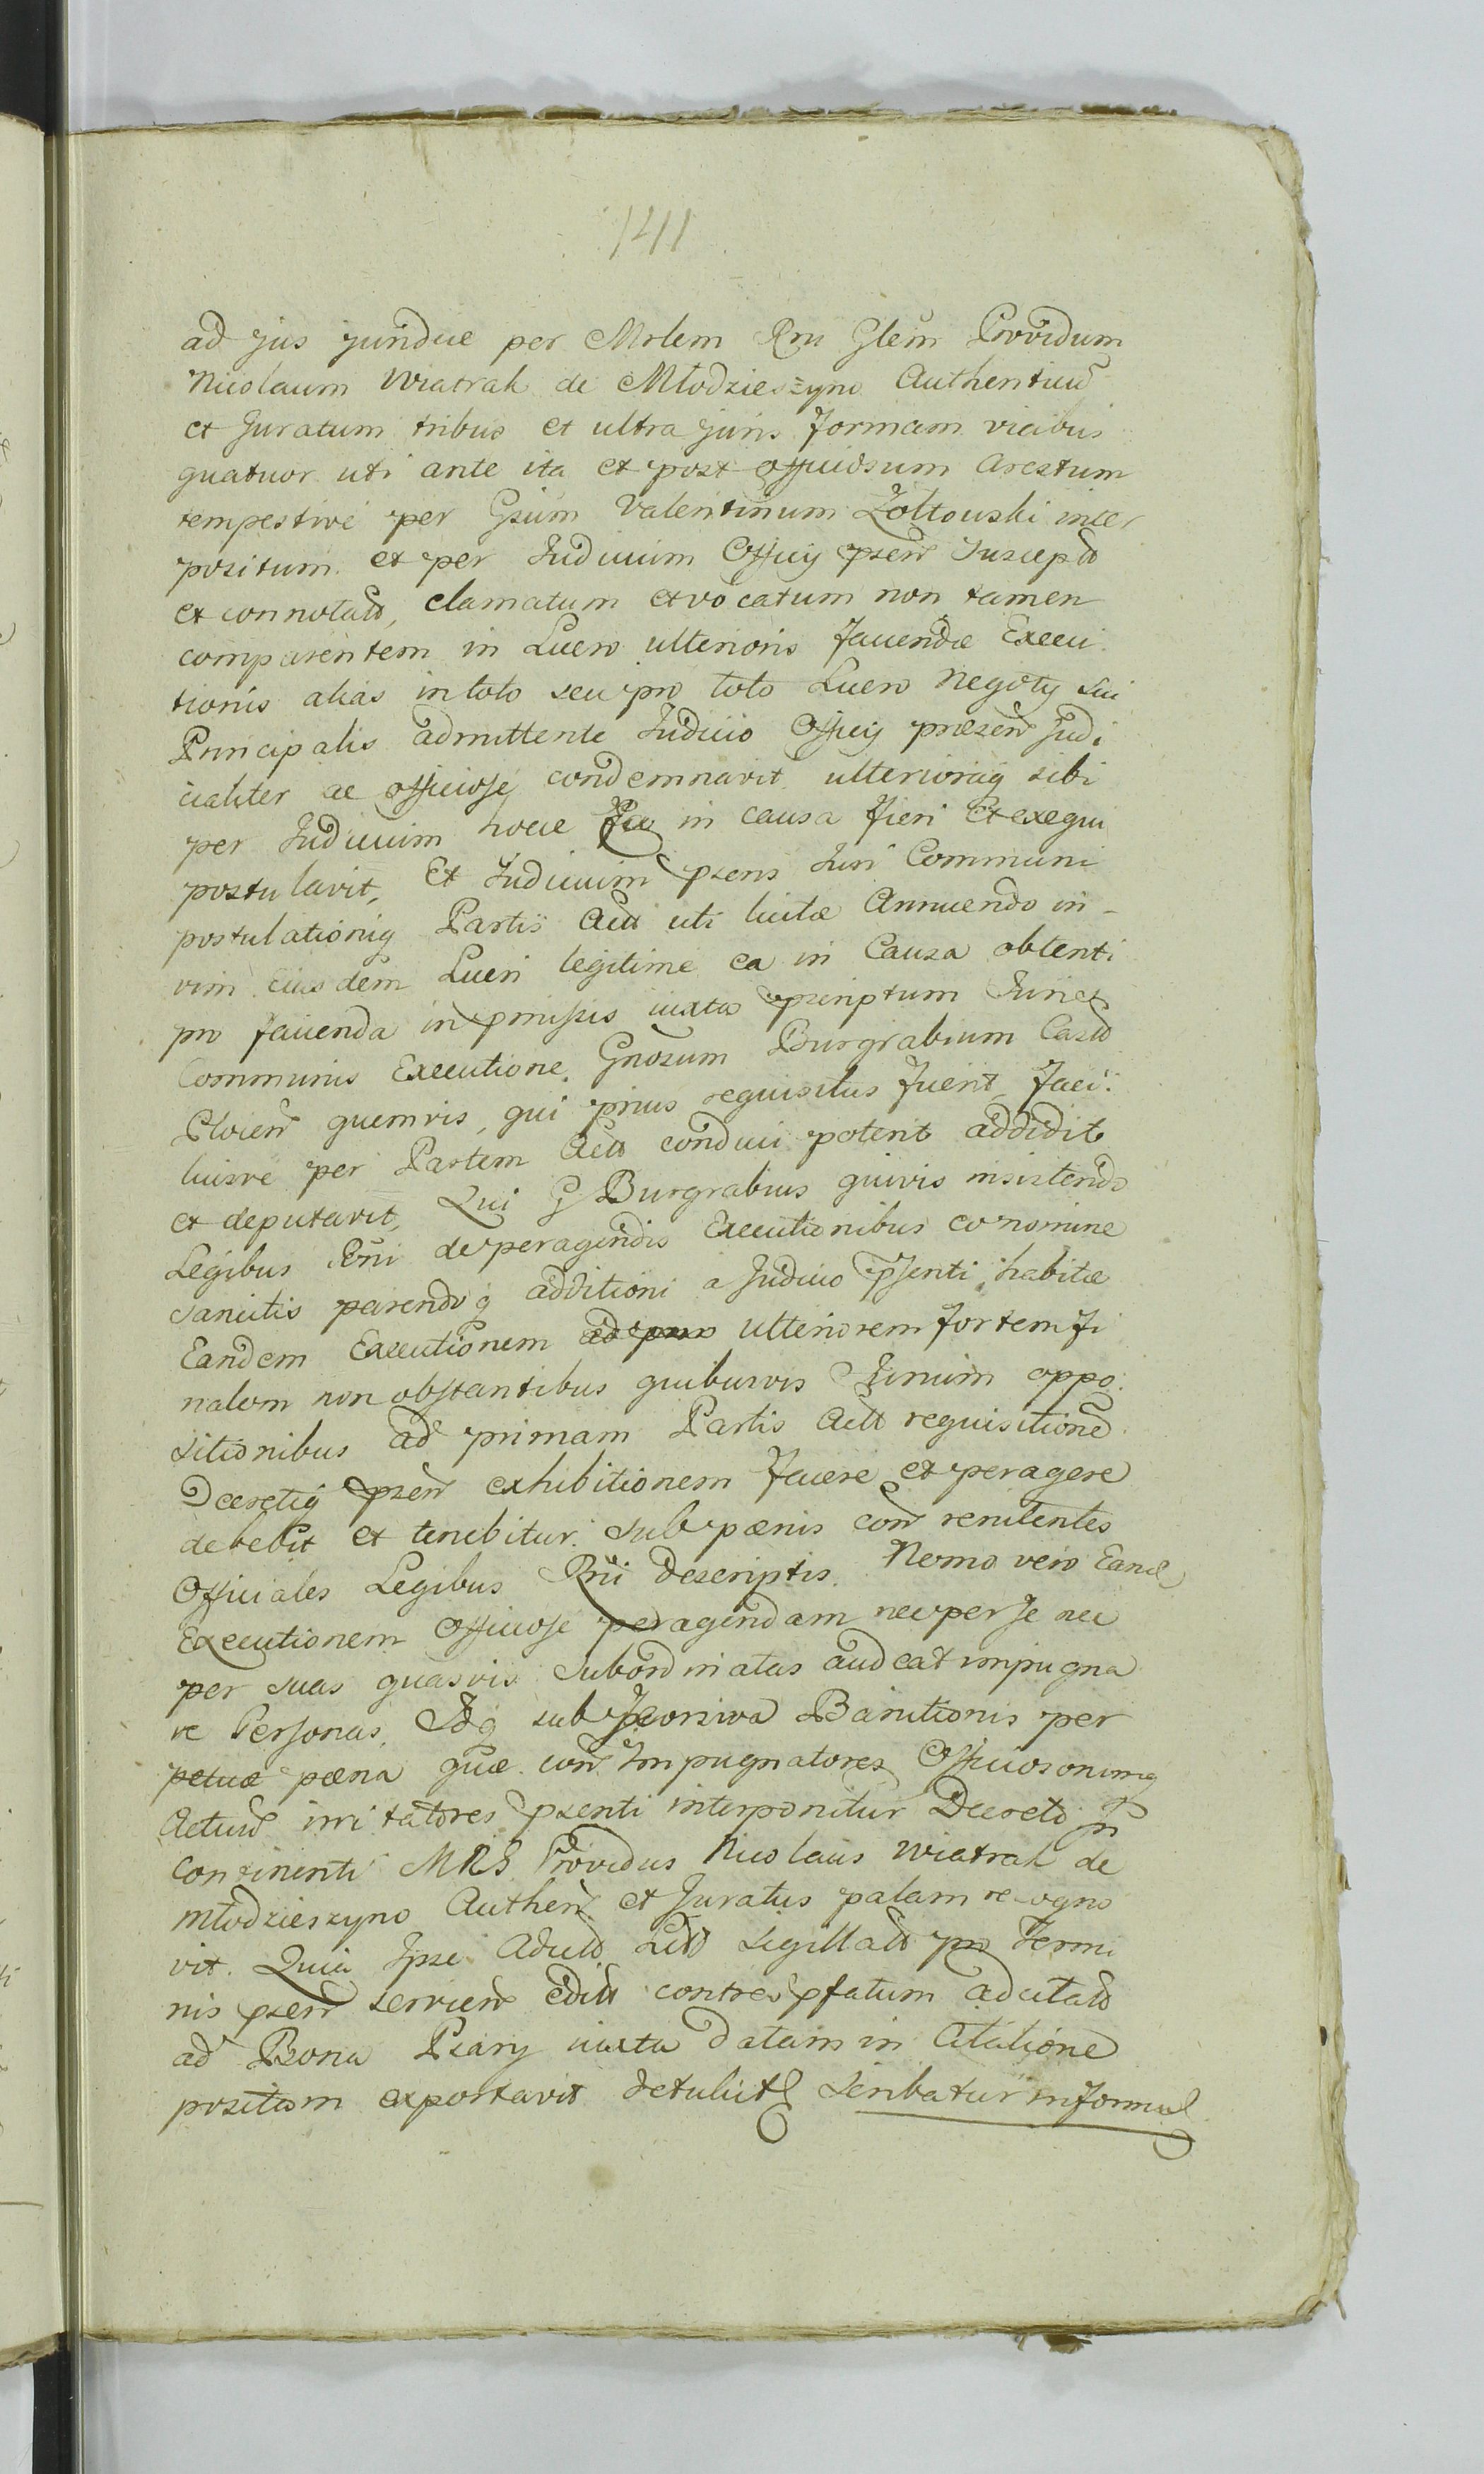 1411
ad jus juridice per Mrlem Rni Glem Providum
Nicolaum Wiatrak de Młodzieszyno Authenticū
et Juratum tribus et ultra juris formam vicibus
quatuor uti ante ita et post officiosum Arestum
tempestive per Gsum Valentinum Zołtowski inter
positum et per Judicium Officij psen Suscept
et connotat, clamatum et vocatum non tamen
comparentem in Lucro ulterioris faciendæ Execu
tionis alias in toto seu pro toto Lucro Negotij sui
Principalis admittente Judicio Officij præsen Judi
cialiter ac officiose condemnavit ulteriorāq sibi
per Judicium hocce in causa fieri et exequi
postulavit, Et Judicium psens Juri Communi
postulationiq Partis Act uti licitæ Annuendo in
vim eiusdem Lucri legitime ea in Causa obtenti
pro facienda in pmissis iuxta pscriptum Juris
Communis Executione, Gnosum Burgrabium Cas
quemvis, qui prius requisitus fuerit, faci:
liusve per Partem Act conduci poterit addidit
et deputavit, Qui G Burgrabius quivis insistendo
Legibus Rni de peragendis Executionibus eo nomine
sancitis parendoq additioni a Judicio psenti habitæ
Eandem Executionem ulteriorem fortem fi
nalem non obstantibus quibusvis Jurium oppo:
sitionibus ad primam Partis Act requisitionē
Decretiq psen exhibitionem facere et peragere
debebit et tenebitur sub pœnis con renitentes
Officiales Legibus Rni descriptis. Nemo vero Eand
Executionem Officiose peragendam nec per se nec
per suas quasvis subordinatas audeat impugna
re Personas, Idq sub Banitionis per
petuæ pœna quæ con Impugnatores Officiosorumq
Actuū irritatores psenti interponitur Decreto In
Continenti MRS Providus Nicolaus Wiatrak de
Młodzieszyno Authen et Juratus palam recogno
vit. Quia Ipse Sigillat pro Termi
nis psen servien edit contra pfatum adcitat
ad Bona Psary iuxta datam in Citatione
positam exportavit detulit Scribatur in forma